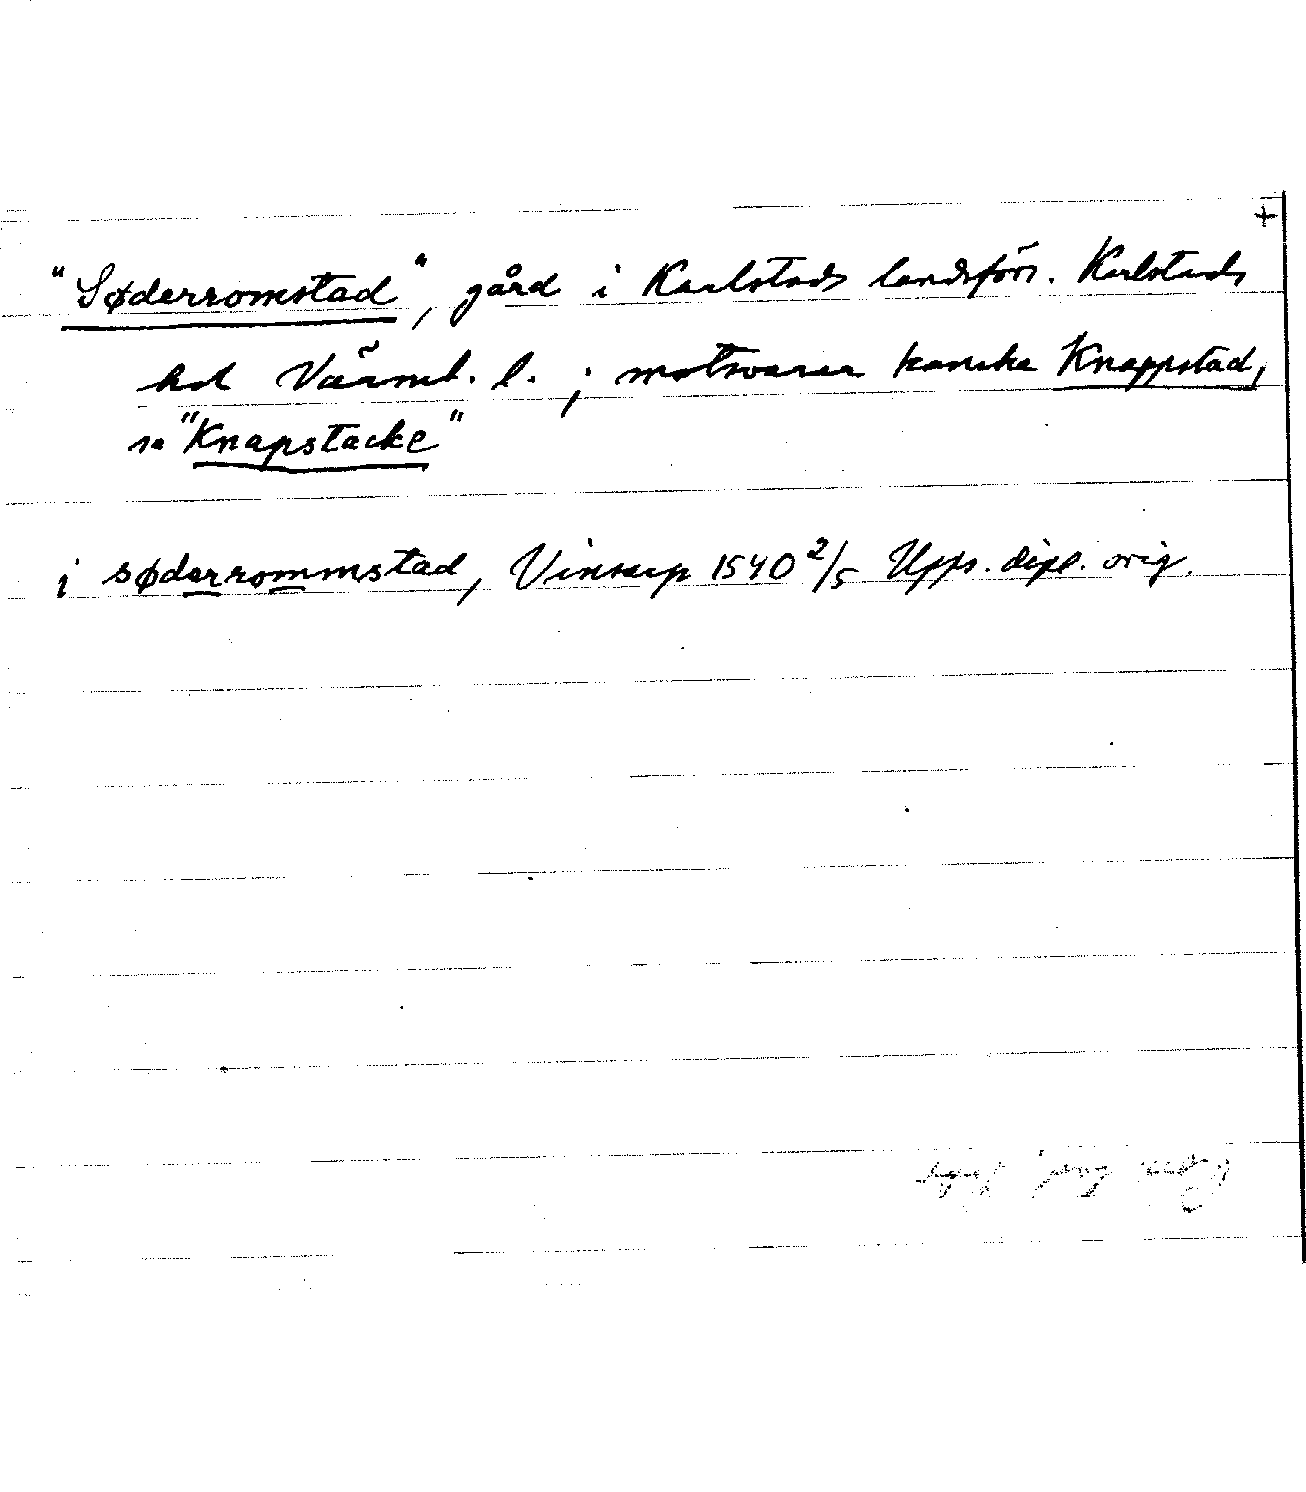 +
"Søderromstad", gård i Karlstads landsförs. Karlstads
hd Värml. l.; motsvarar kanske Knappstad,
se "Knapstacke"
i søderrommstad, Vinköp 1540 2/5 Upps. dipl. orig.